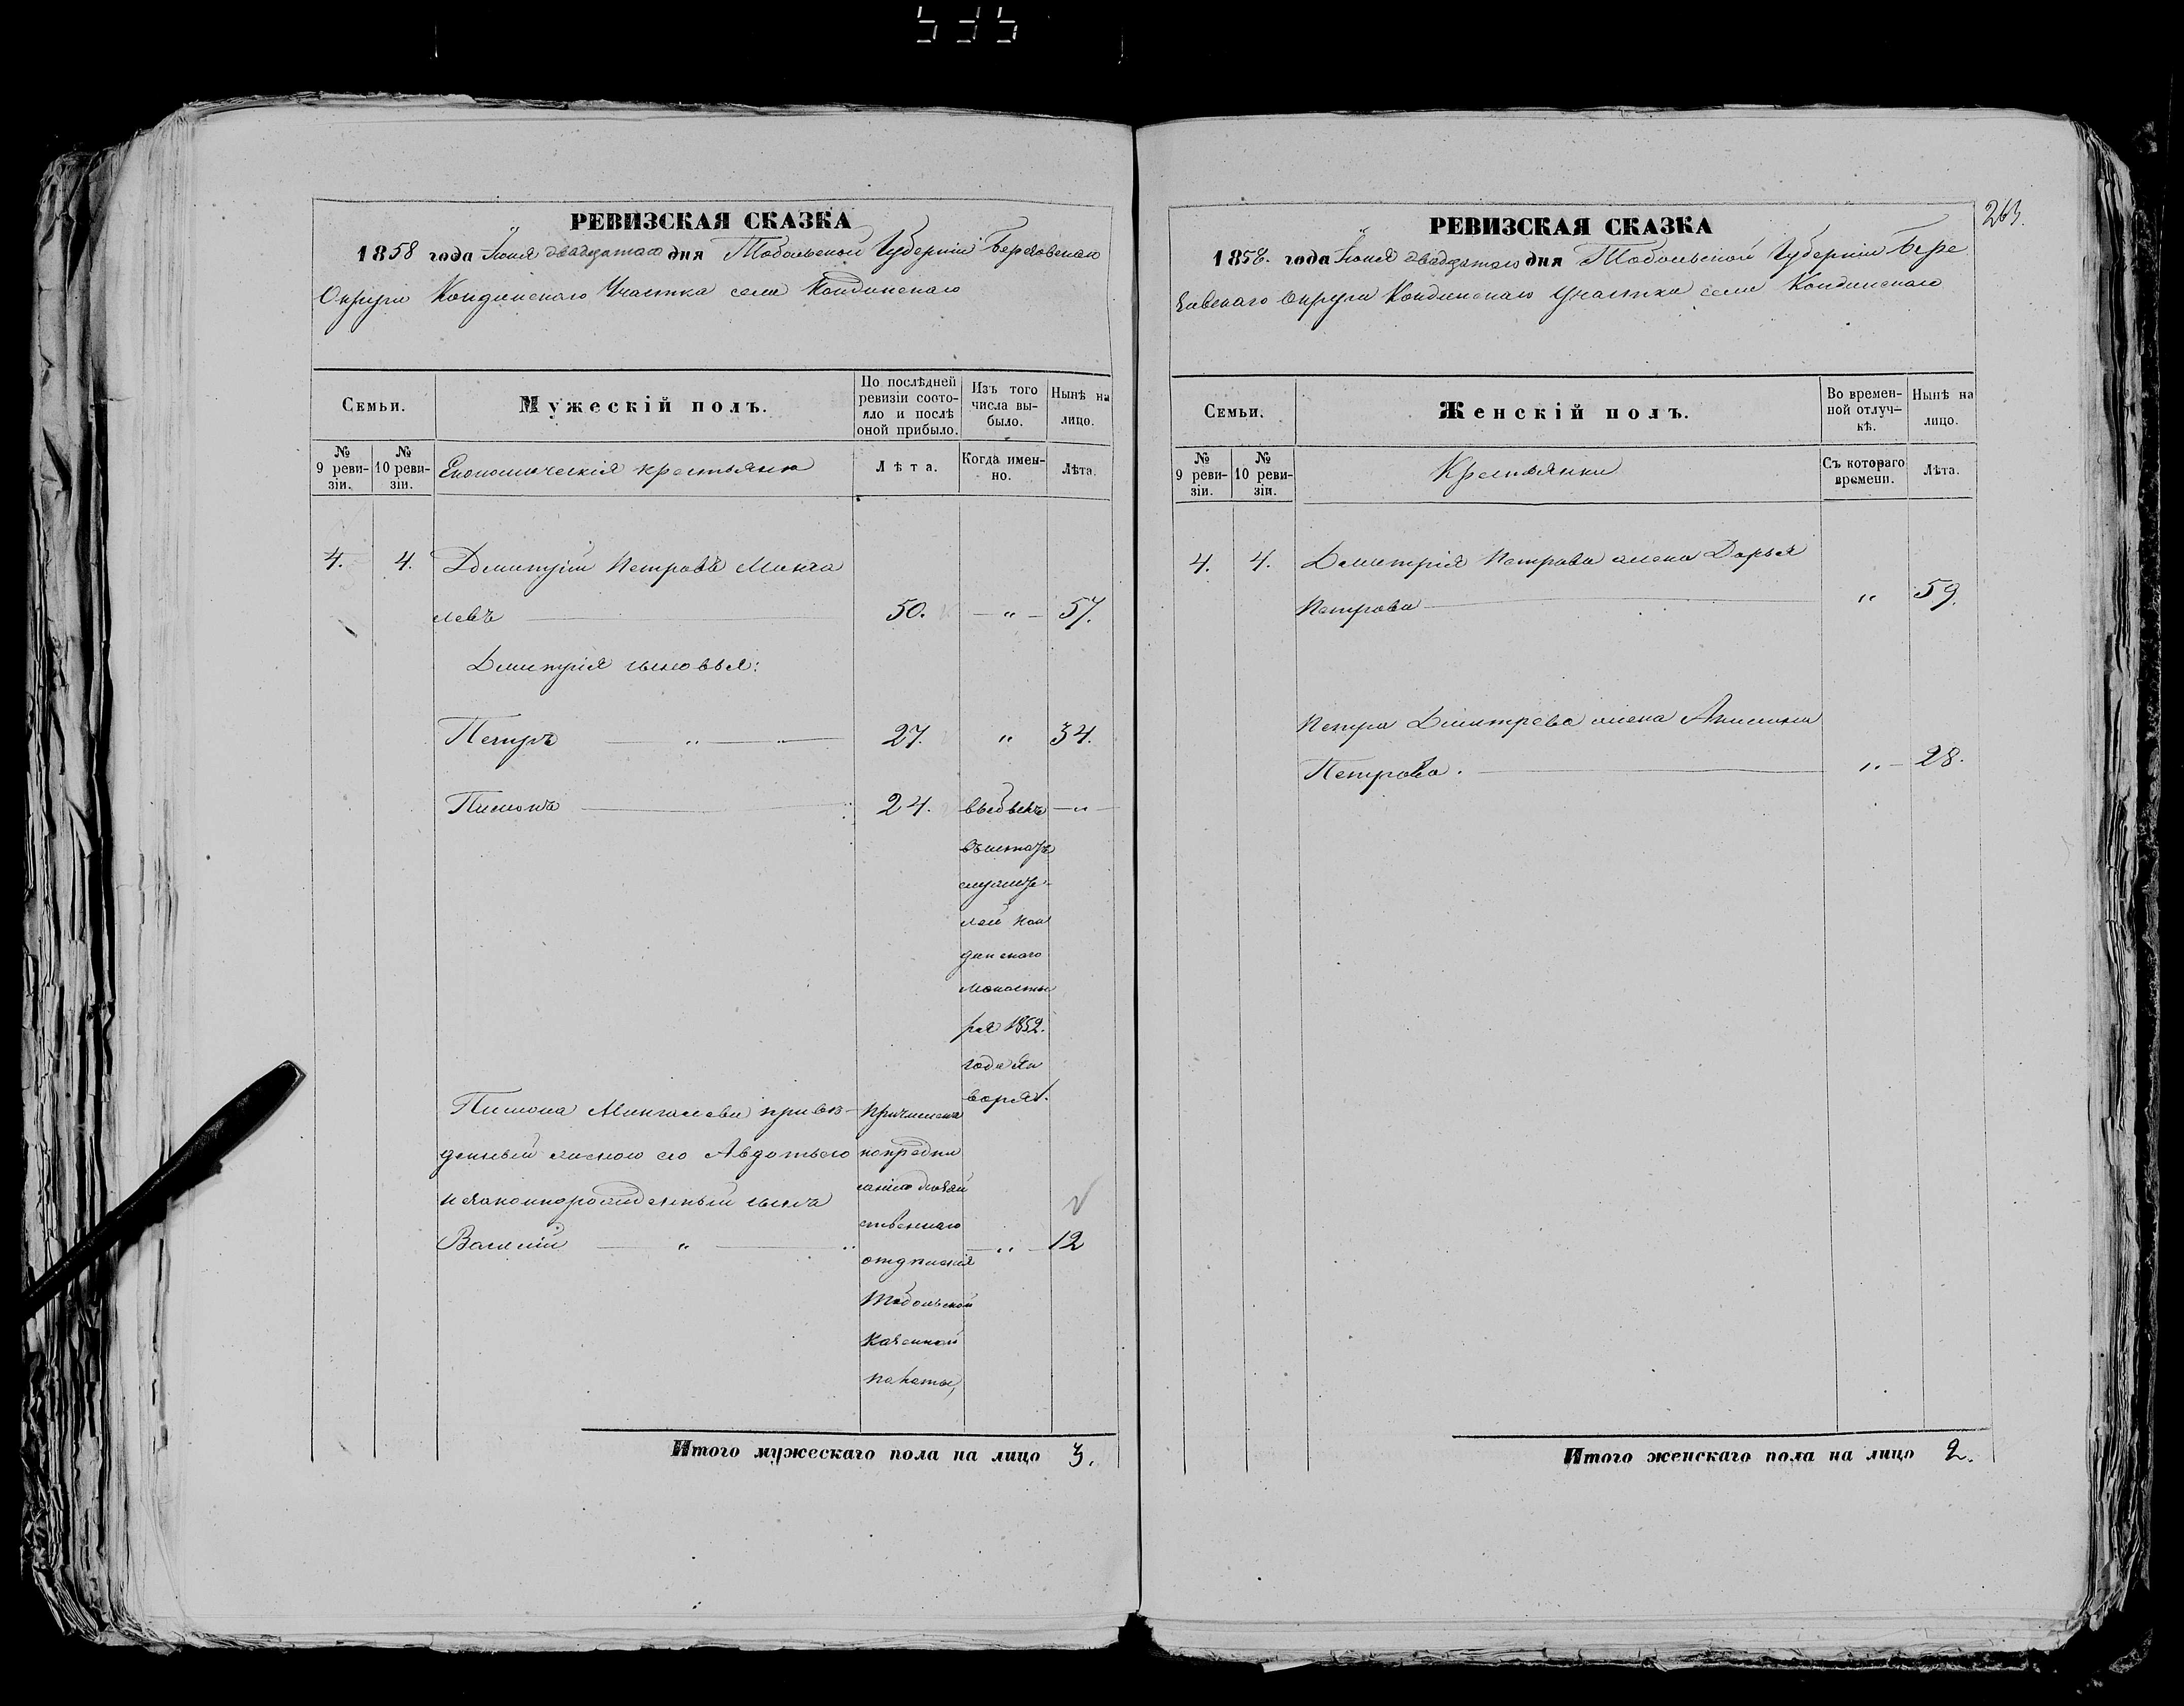 535
РЕВИЗСКАЯ СКАЗКА
1858 года Іюня двадцатаго дня Тобольской Губерніи Березовскаго
Округи Кондинскаго Участка села Кондинскаго
Семьи.
Мужескій полъ.
По послѣдней
ревизіи состо-
яло и послѣ
оной прибыло.
Изъ того
числа вы-
было.
Нынѣ на
лицо.
№
9 реви-
зіи.
№
10 реви-
зіи.
Економическія крестьяна
Лѣта.
Когда имен-
но.
Лѣта.
4. 4. Дмитрій Петровъ Минга
левъ 50. — „ — 57.
Дмитрія сыновья:
Петръ „ 27. „ 34.
Пимонъ 24. — „ —
въ штатъ
служите-
лей Кон
динскаго
монасты
ря 1852.
года Ян
варя 1.
Пимона Мингалева приве-
денный женою его Авдотьею
незаконнорожденный сынъ
Василій „ — „ — 12
причисленъ
по предпи
санію
ственнаго
отдѣленія
Тобольской
Казенной
палаты,
Итого мужескаго пола на лицо 3.
263.
РЕВИЗСКАЯ СКАЗКА
1858. года Іюня двадцатаго дня Тобольской Губерніи Бере
зовскаго Округи Кондинскаго Участка села Кондинскаго
Семьи.
Женскій полъ.
Во времен-
ной отлуч-
кѣ.
Нынѣ на
лицо.
№
9 реви-
зіи.
№
10 реви-
зіи.
Крестьянки
Съ котораго
времени.
Лѣта.
4. 4. Дмитрія Петрова жена Дарья
Петрова „ 59.
Петра Дмитрева жена
Петрова. „ — 28.
Итого женскаго пола на лицо 2.